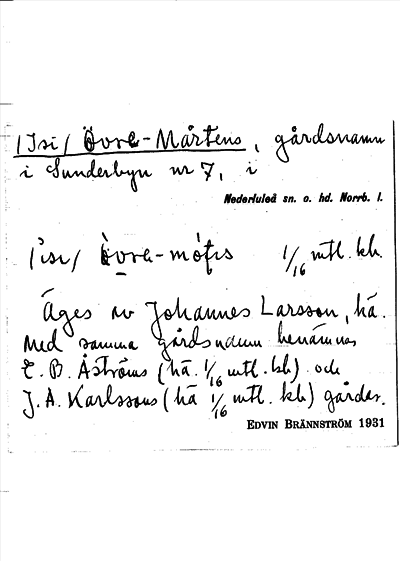 /Isi/ Övre-Mårtens, gårdsnamn
i Sunderbyn nr 7, i
Nederluleå sn. o. hd. Norrb. l.
1/16 mtl. kb.
Äges av Johannes Larsson, hä.
Med samma gårdsnamn benämnes
E. B. Åströms (hä. 1/16 mtl. kb) och
J. A. Karlssons (hä 1/16 mtl. kb) gårdar.
EDVIN BRÄNNSTRÖM 1931